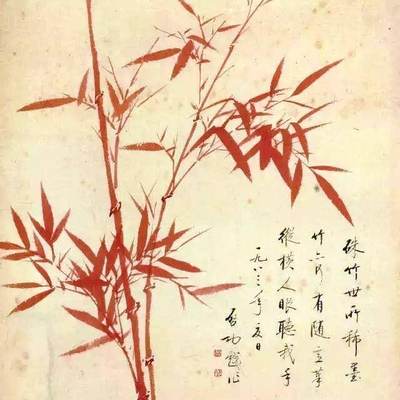 硃竹世所稀墨
竹亦有隨意筆
縱橫人眼聽我手
一九八三年夏日
启功戲作